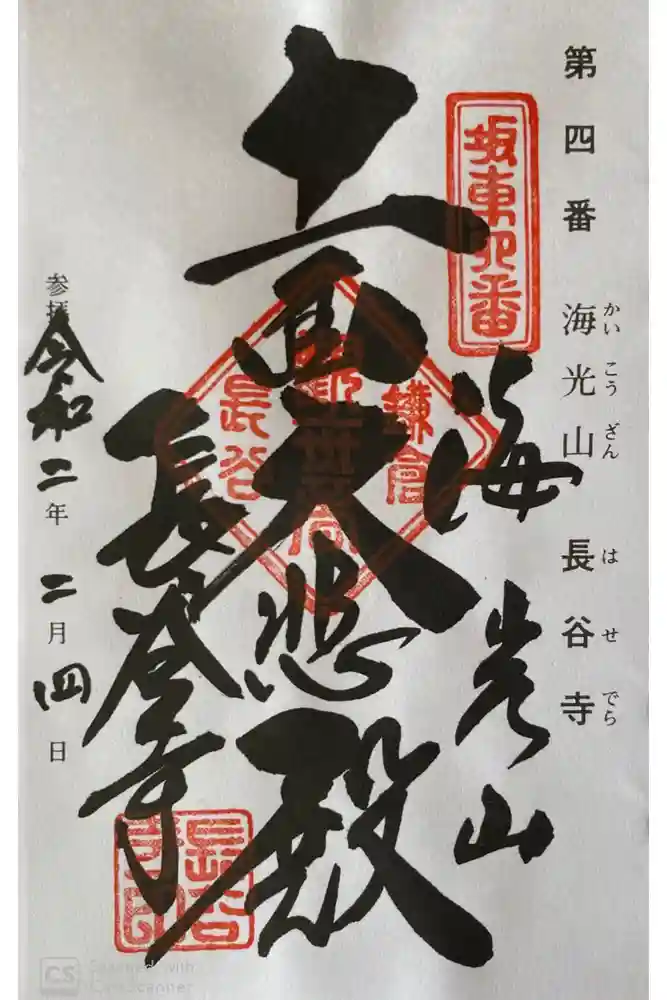 第四番 海光山 長谷寺
かいこうざん はせでら
坂東四番
海光山
十一面大悲殿
鎌倉
長谷
長谷寺
長谷寺印
参拝 令和二年 二月 四日
CS Scanned with CamScanner